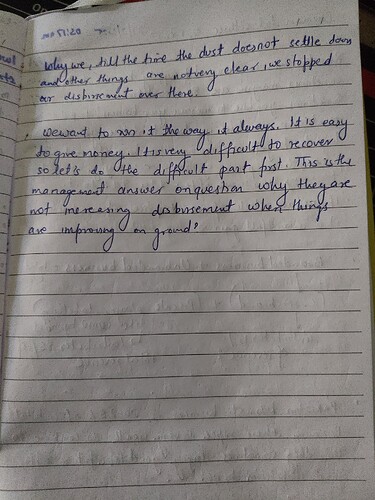 51:20
Why we, till the time the dust doesnot settle down
and other things are notvery clear, we stopped
our disbirsement over there.
We want to run it the way it always. It is easy
to give money. It is very difficult to recover
so let's do the difficult part first. This is the
management answer on question why they are
not increasing disbursement when things
are improving on ground?